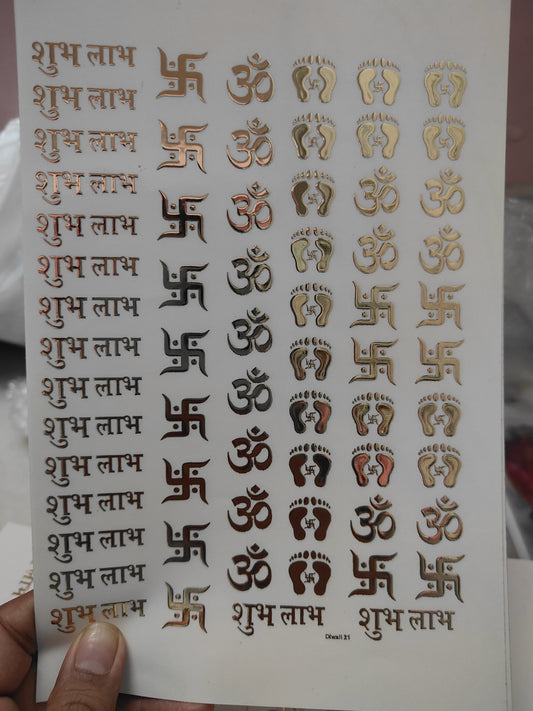 शुभ लाभ ॐ
शुभ लाभ
शुभ लाभ ॐ
शुभ लाभ ॐ ॐ
शुभ लाभ ॐ
शुभ लाभ ॐ ॐ ॐ
शुभ लाभ
शुभ लाभ ॐ
शुभ लाभ ॐ
शुभ लाभ
शुभ लाभ ॐ
शुभ लाभ ॐ ॐ ॐ
शुभ लाभ
शुभ लाभ ॐ
शुभ लाभ शुभ लाभ शुभ लाभ
Diwali 21